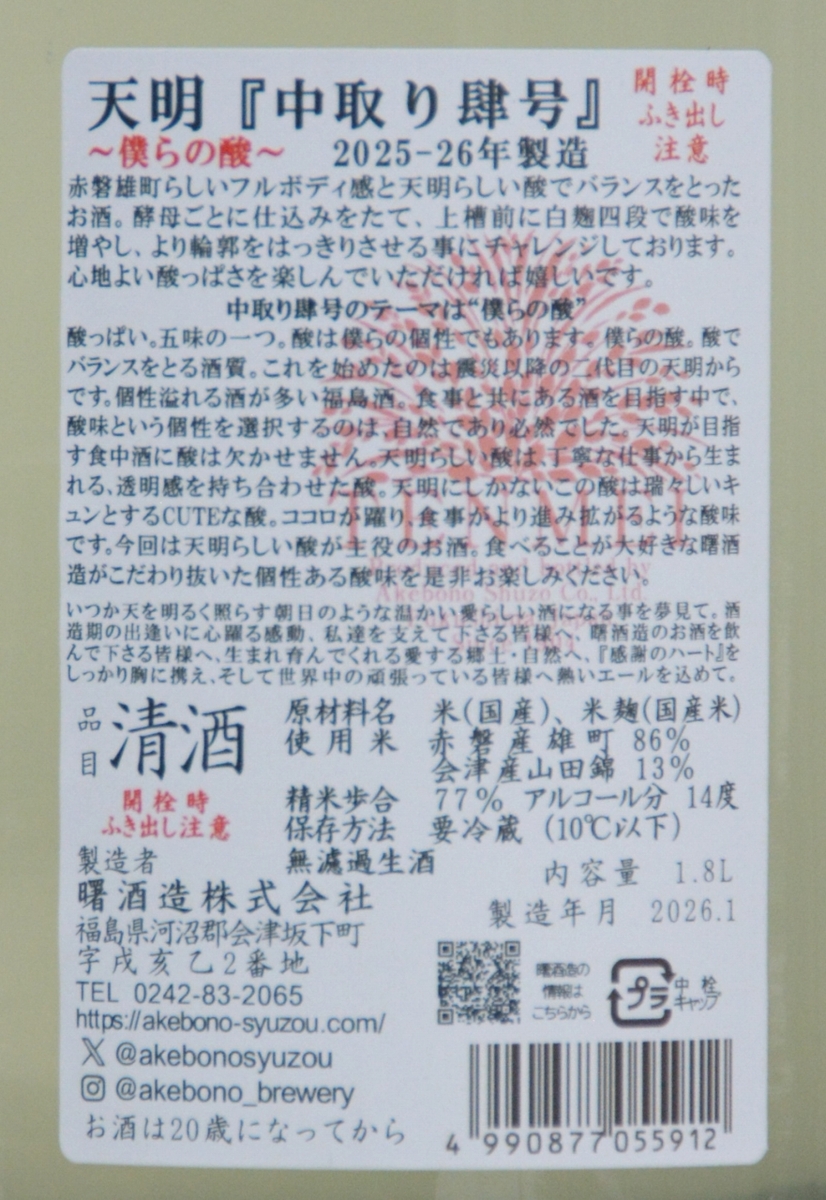 天明『中取り肆号』
開栓時
ふき出し
注意
～僕らの酸～ 2025-26年製造
赤磐雄町らしいフルボディ感と天明らしい酸でバランスをとった
お酒。酵母ごとに仕込みをたて、上槽前に白麹四段で酸味を
増やし、より輪郭をはっきりさせる事にチャレンジしております。
心地よい酸っぱさを楽しんでいただければ嬉しいです。
中取り肆号のテーマは“僕らの酸”
酸っぱい。五味の一つ。酸は僕らの個性でもあります。僕らの酸。酸で
バランスをとる酒質。これを始めたのは震災以降の二代目の天明から
です。個性溢れる酒が多い福島酒。食事と共にある酒を目指す中で、
酸味という個性を選択するのは、自然であり必然でした。天明が目指
す食中酒に酸は欠かせません。天明らしい酸は、丁寧な仕事から生ま
れる、透明感を持ち合わせた酸。天明にしかないこの酸は瑞々しいキ
ュンとするCUTEな酸。ココロが躍り、食事がより進み拡がるような酸味
です。今回は天明らしい酸が主役のお酒。食べることが大好きな曙酒
造がこだわり抜いた個性ある酸味を是非お楽しみください。
TENMEI
Produced and bottled by
Akebono Shuzo Co., Ltd.
いつか天を明るく照らす朝日のような温かい愛らしい酒になる事を夢見て。酒
造期の出逢いに心躍る感動、私達を支えて下さる皆様へ、曙酒造のお酒を飲
んで下さる皆様へ、生まれ育んでくれる愛する郷土・自然へ、『感謝のハート』を
しっかり胸に携え、そして世界中の頑張っている皆様へ熱いエールを込めて。
品目 清酒
原材料名 米(国産)、米麹(国産米)
使用米 赤磐産雄町 86%
会津産山田錦 13%
開栓時
ふき出し注意
精米歩合 77% アルコール分 14度
保存方法 要冷蔵 (10℃以下)
製造者 無濾過生酒
曙酒造株式会社
福島県河沼郡会津坂下町
字戌亥乙2番地
TEL 0242-83-2065
https://akebono-syuzou.com/
X @akebonosyuzou
@akebono_brewery
お酒は20歳になってから
内容量 1.8L
製造年月 2026.1
曙酒造の
情報は
こちらから
プラ
中栓
キャップ
4 990877 055912